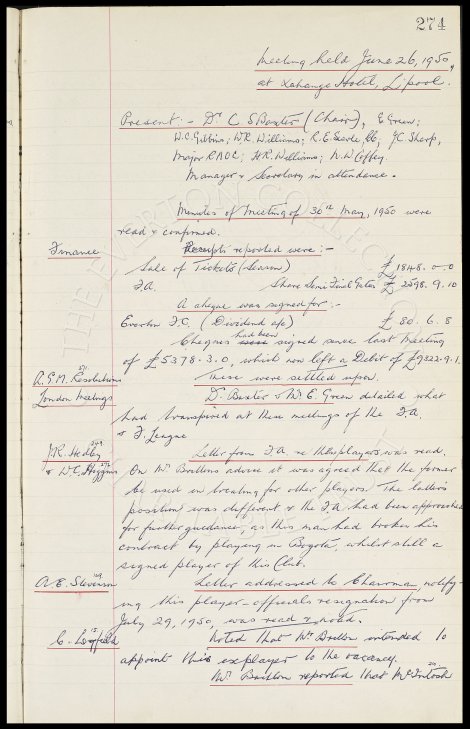 274
Meeting held June 26, 1950,
at Exchange Hotel, L'pool.
Present:- Dr C. S. Baxter (Chair), E Green;
W.C. Gibbins; W.R. Williams; R.E. Searle, J.C. Sharp,
Major H.R. Williams; N.W. Coffey.
Manager & Secretary in attendance.
Minutes of Meeting of 30th May, 1950 were
read & confirmed.
Finance
Receipts reported were:-
Sale of Tickets (Season) £1848. 0. 0
F.A. Share Semi Final Gates £ 9. 10
A cheque was signed for:-
Everton F.C. (Dividend a/c) £80. 6. 8
had been
Cheques signed since last Meeting
of £5378. 3. 0, which now left a Debit of £9322. 9. 1.
These were settled upon.
A.G.M. Resolutions
London Meetings
Dr. Baxter & Mr E. Green detailed what
had transpired at these meetings of the F.A.
& F. League
J.R. Hedley
& W.C. Higgins
Letter from F.A. re these players was read.
On Mr Brittons advice it was agreed that the former
be used in for other players. The latter's
position was different & the F.A. had been approached
for further guidance, as this man had broken his
contract by playing in Bogota, whilst still a
signed player of this Club.
A.E. Stevenson
Letter addressed to Chairman, notify-
ing this player-officials resignation from
July 29, 1950, was read & noted.
C. Leyfield
Noted that Mr Britton intended to
appoint this explayer to the vacancy.
Mr. Britton reported that McIntosh
THE EVERTON COLLECTION